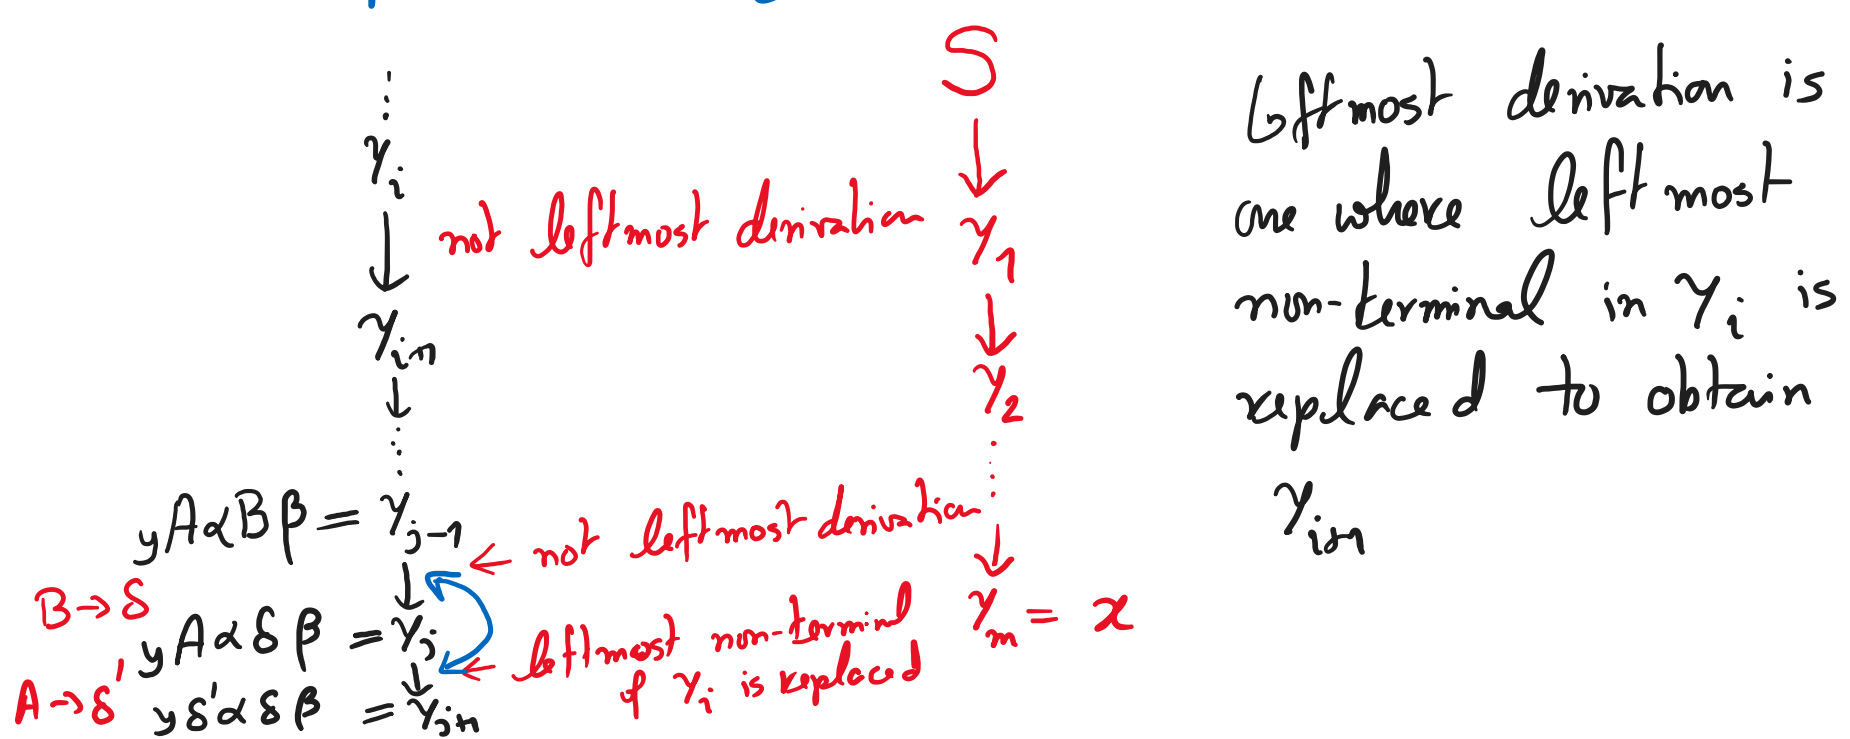 S
γ_i
not leftmost derivation
γ_1
γ_{i+1}
γ_2
yAαBβ = γ_{j-1}
← not leftmost derivation
B → δ
yAαδβ = γ_j
← leftmost non-terminal
of γ_i is replaced
γ_m = x
A → δ'
yδ'αδβ = γ_{j+1}
Leftmost derivation is
one where left most
non-terminal in γ_i is
replaced to obtain
γ_{i+1}